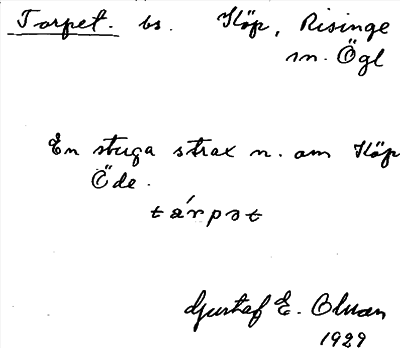 Torpet. bs. Köp, Risinge
sn. Ögl
En stuga strax n. om Köp
Öde.
tárpət
Gustaf E. Olman
1929